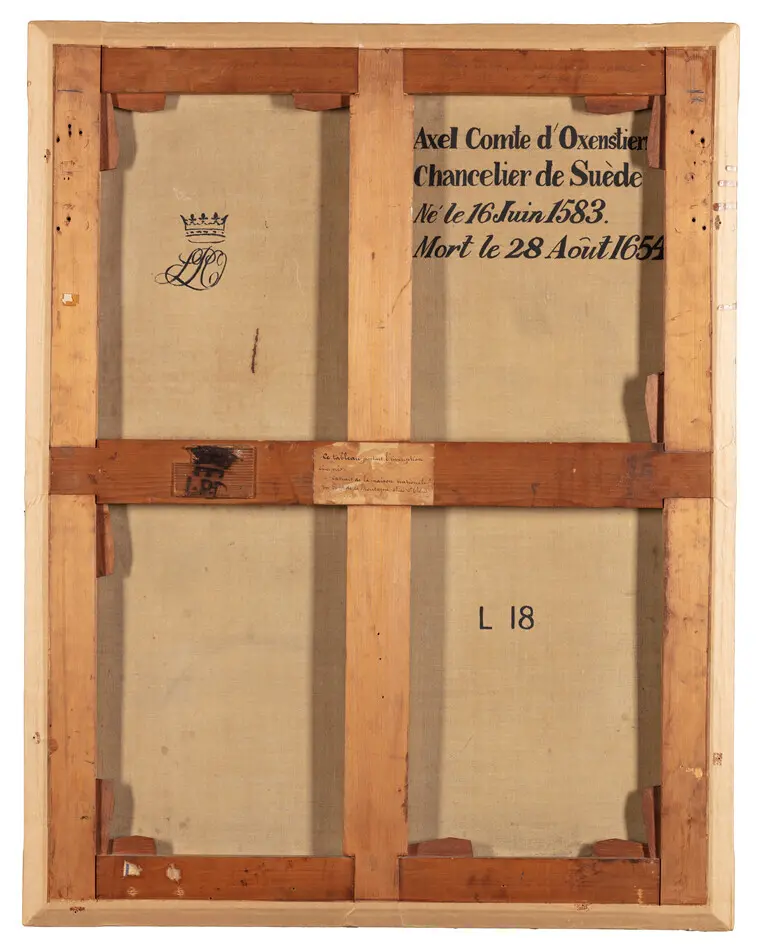 Axel Comte d'Oxenstiern
Chancelier de Suède
Né le 16 Juin 1583.
Mort le 28 Août 1654
Ce tableau l'inscription
de la maison
L 18